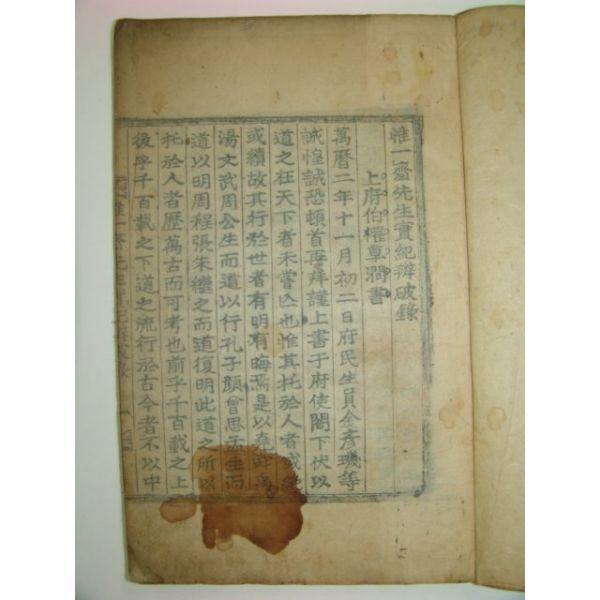 惟一齋先生實紀辨破錄
上府伯權草澗書
萬曆二年十一月初二日府民生員金彥璣等
誠惶誠恐頓首再拜謹上書于府使閤下伏以
道之在天下者未嘗亡也惟其托於人者或絕
或續故其行於世者有明有晦焉是以堯舜禹
湯文武周公生而道以行孔子顏曾思孟生而
道以明周程張朱繼之而道復明此道之所以
托於人者歷萬古而可考也前乎千百載之上
後乎千百載之下道之流行於古今者不以中